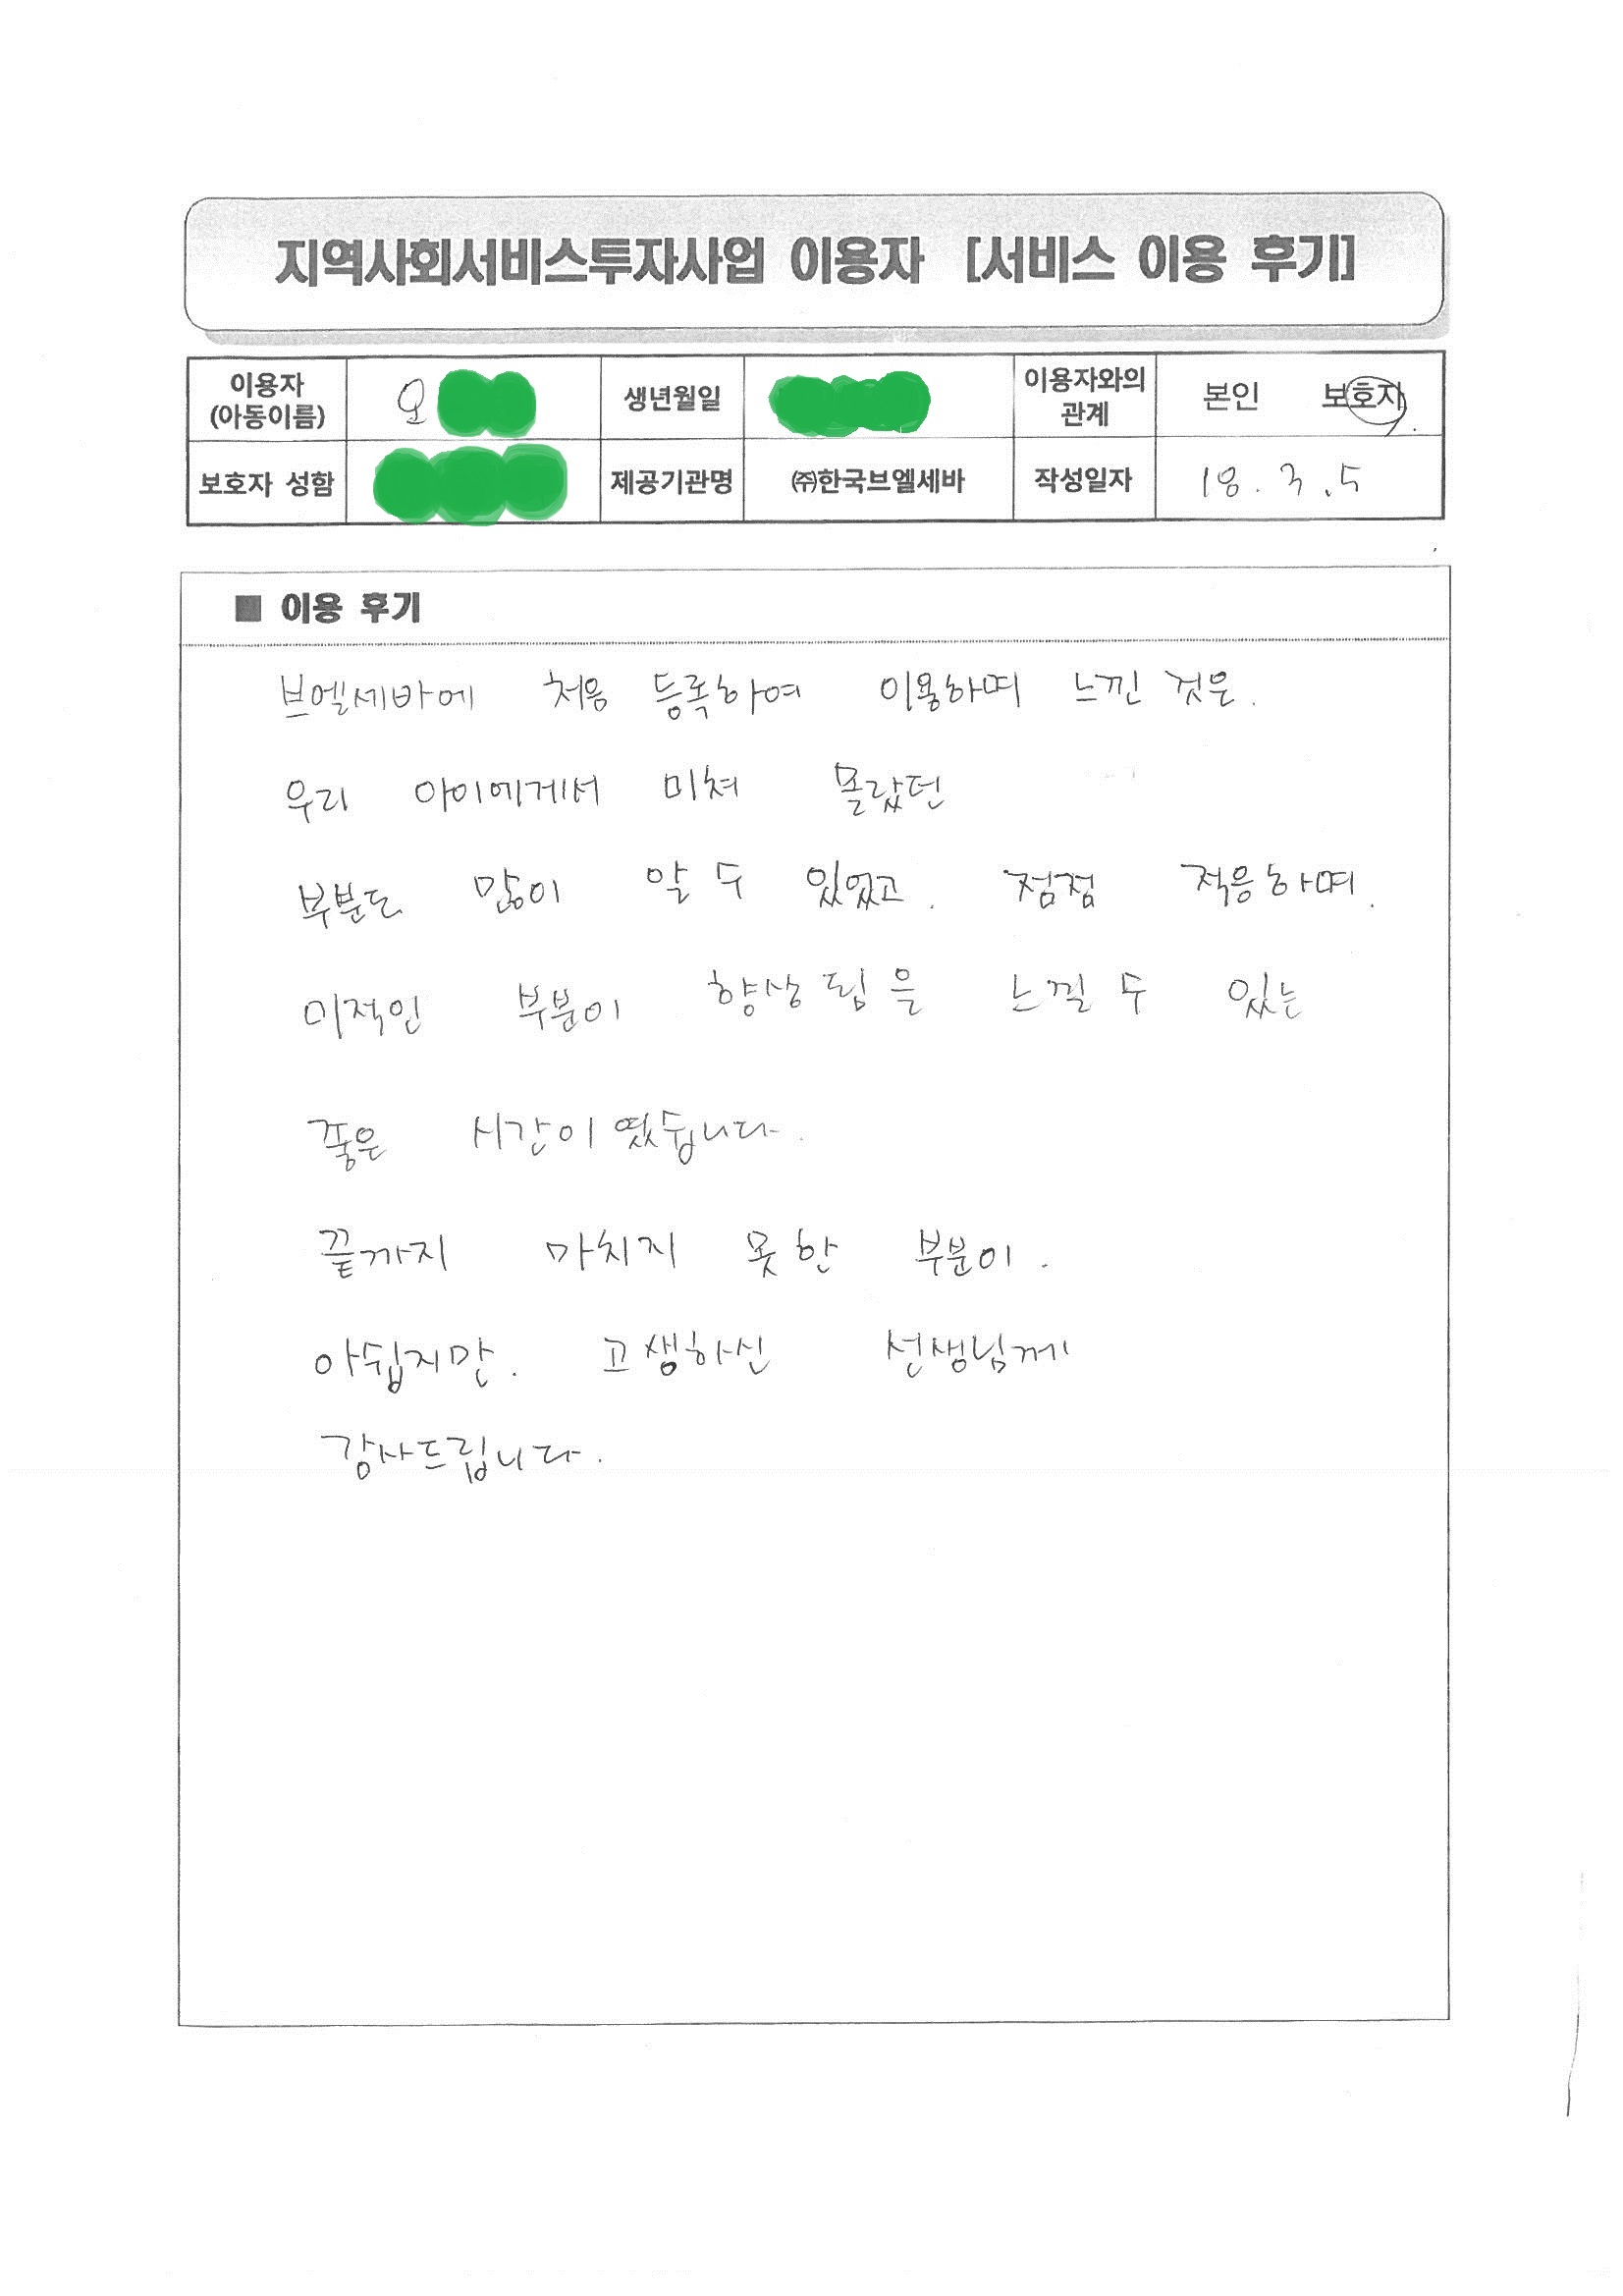 지역사회서비스투자사업 이용자 [서비스 이용 후기]
이용자 (아동이름) 오 생년월일 이용자와의 관계 본인 보호자
보호자 성함 제공기관명 ㈜한국브엘세바 작성일자 18. 3. 5
■ 이용 후기
브엘세바에 처음 등록하여 이용하며 느낀 것은.
우리 아이에게서 미쳐 몰랐던
부분도 많이 알 수 있었고. 점점 적응하며.
미적인 부분이 향상 됨을 느낄 수 있는
좋은 시간이 였습니다.
끝까지 마치지 못한 부분이.
아쉽지만. 고생하신 선생님께
감사드립니다.